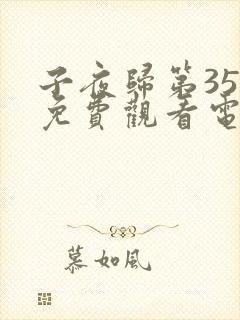 子夜歸第35
免費觀看電
慕如風